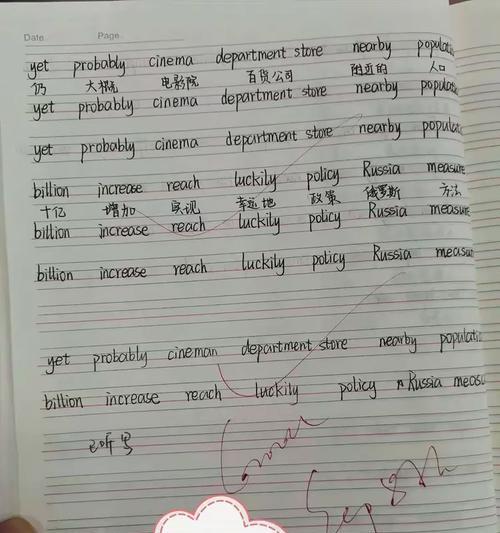 Date Page
yet probably cinema department store nearby populati
仍 大概 电影院 百货公司 附近的 人口
yet probably cinema department store nearby populat
yet probably cinema department store nearby populati
billion increase reach luckily policy Russia measure
十亿 增加 实现 幸运地 政策 俄罗斯 方法
billion increase reach luckily policy Russia measure
billion increase reach luckily policy Russia measur
yet probably cineman department store nearby populati
billion increase reach luckily policy Russia measu
已听写
Good
Sep 8th